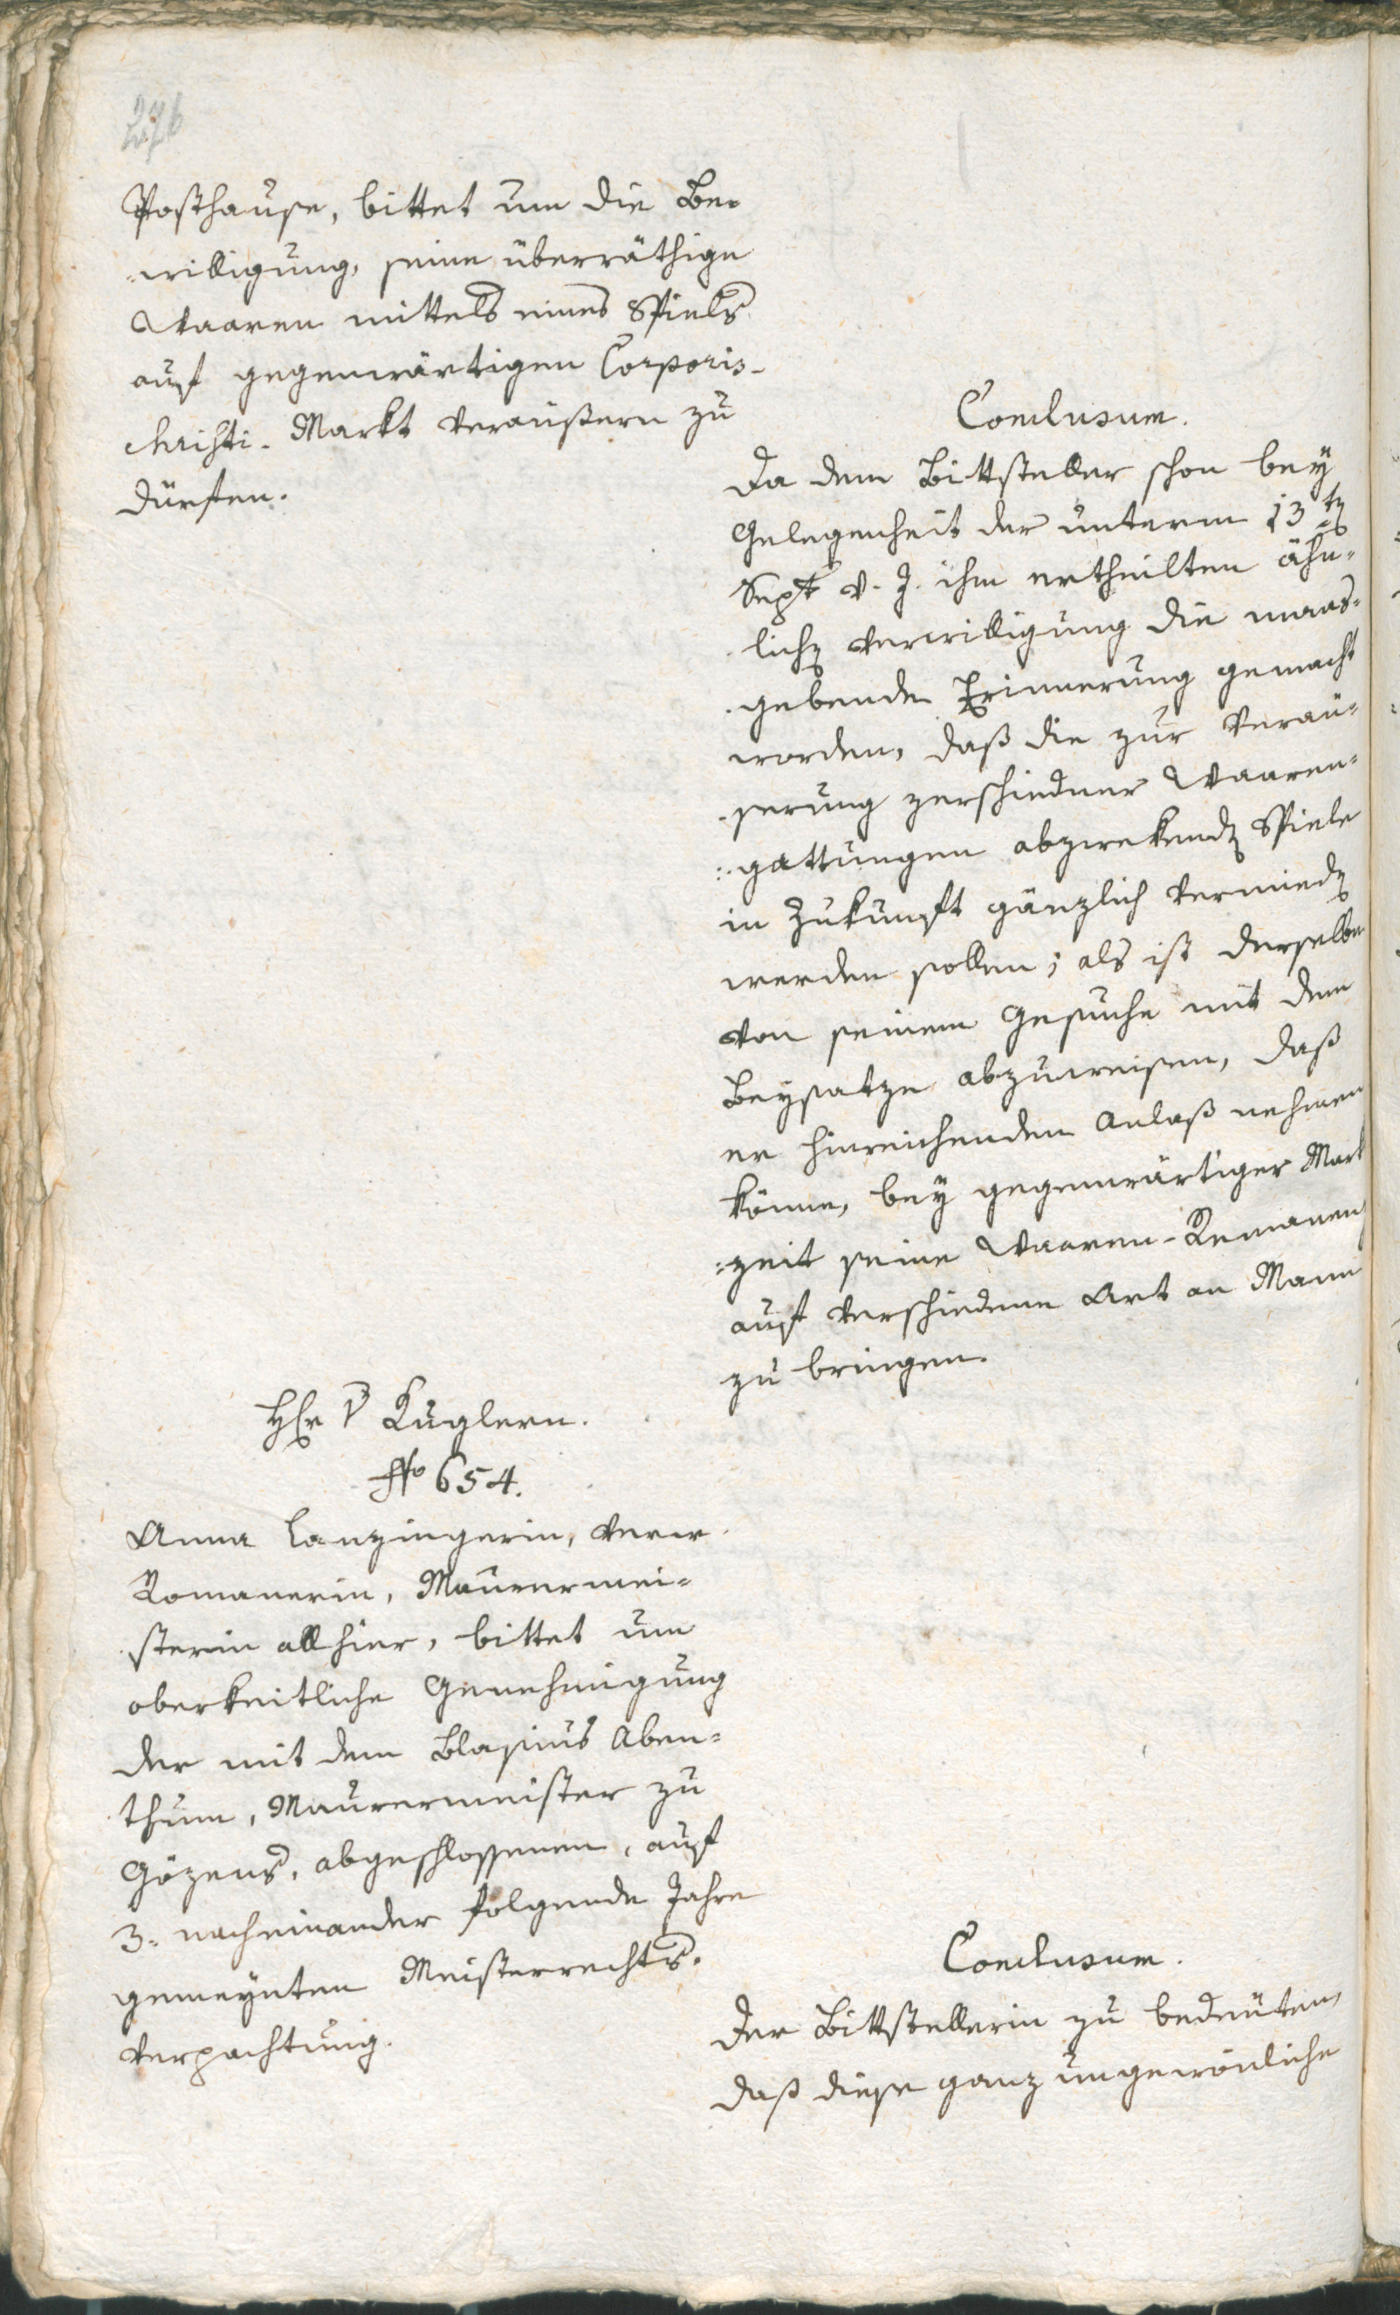 276
Posthause, bittet um die Be-
willigung, seine überräthige
Waaren mittels eines Spiels
auf gegenwärtigen Corporis-
christi-Markt veräußern zu
dürfen.
Conclusum.
Da dem Bittsteller schon bey
Gelegenheit der unterm 13tn
Sept v. J. ihm ertheilten ähn-
lichn Verwilligung die maas-
gebende Erinnerung gemacht
worden, daß die zur Veräu-
serung zerschiedner Waaren-
gattungen abzwekendn Spiele
in Zukunft gänzlich vermiedn
werden sollen; als ist derselbe
von seinem Gesuche mit dem
Beysatze abzuweisen, daß
er hinreichenden Anlaß nehmen
könne, bey gegenwärtiger Mark
zeit seine Waaren-Remanen
auf verschiedene Art an Mann
zu bringen.
Hr v Kuglern.
No 654.
Anna Lanzingerin, verw
Romanerin, Maurermei-
sterin allhier, bittet um
oberkeitliche Genehmigung
der mit dem Blasius Aben-
thum, Maurermeister zu
Gözens, abgeschlossenen, auf
3. nacheinander folgende Jahre
gemeynten Meisterrechts-
Verpachtung.
Conclusum.
Der Bittstellerin zu bedeuten,
daß diese ganz ungewönliche